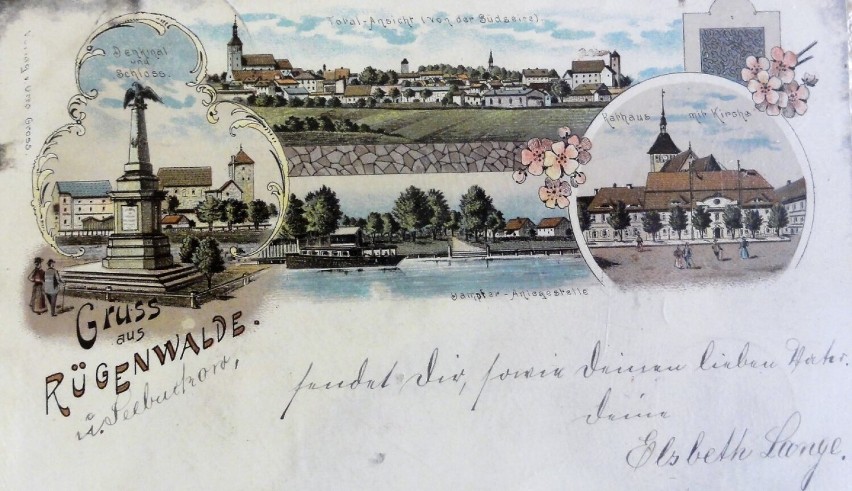 Total-Ansicht (von der Südseite).
Denkmal
und
Schloss.
Rathaus mit Kirche
Dampfer-Anlegestelle
Gruss
aus
RÜGENWALDE.
u. Seebuckow,
sendet Dir, sowie Deinen lieben Vater.
deine
Elsbeth Lange.